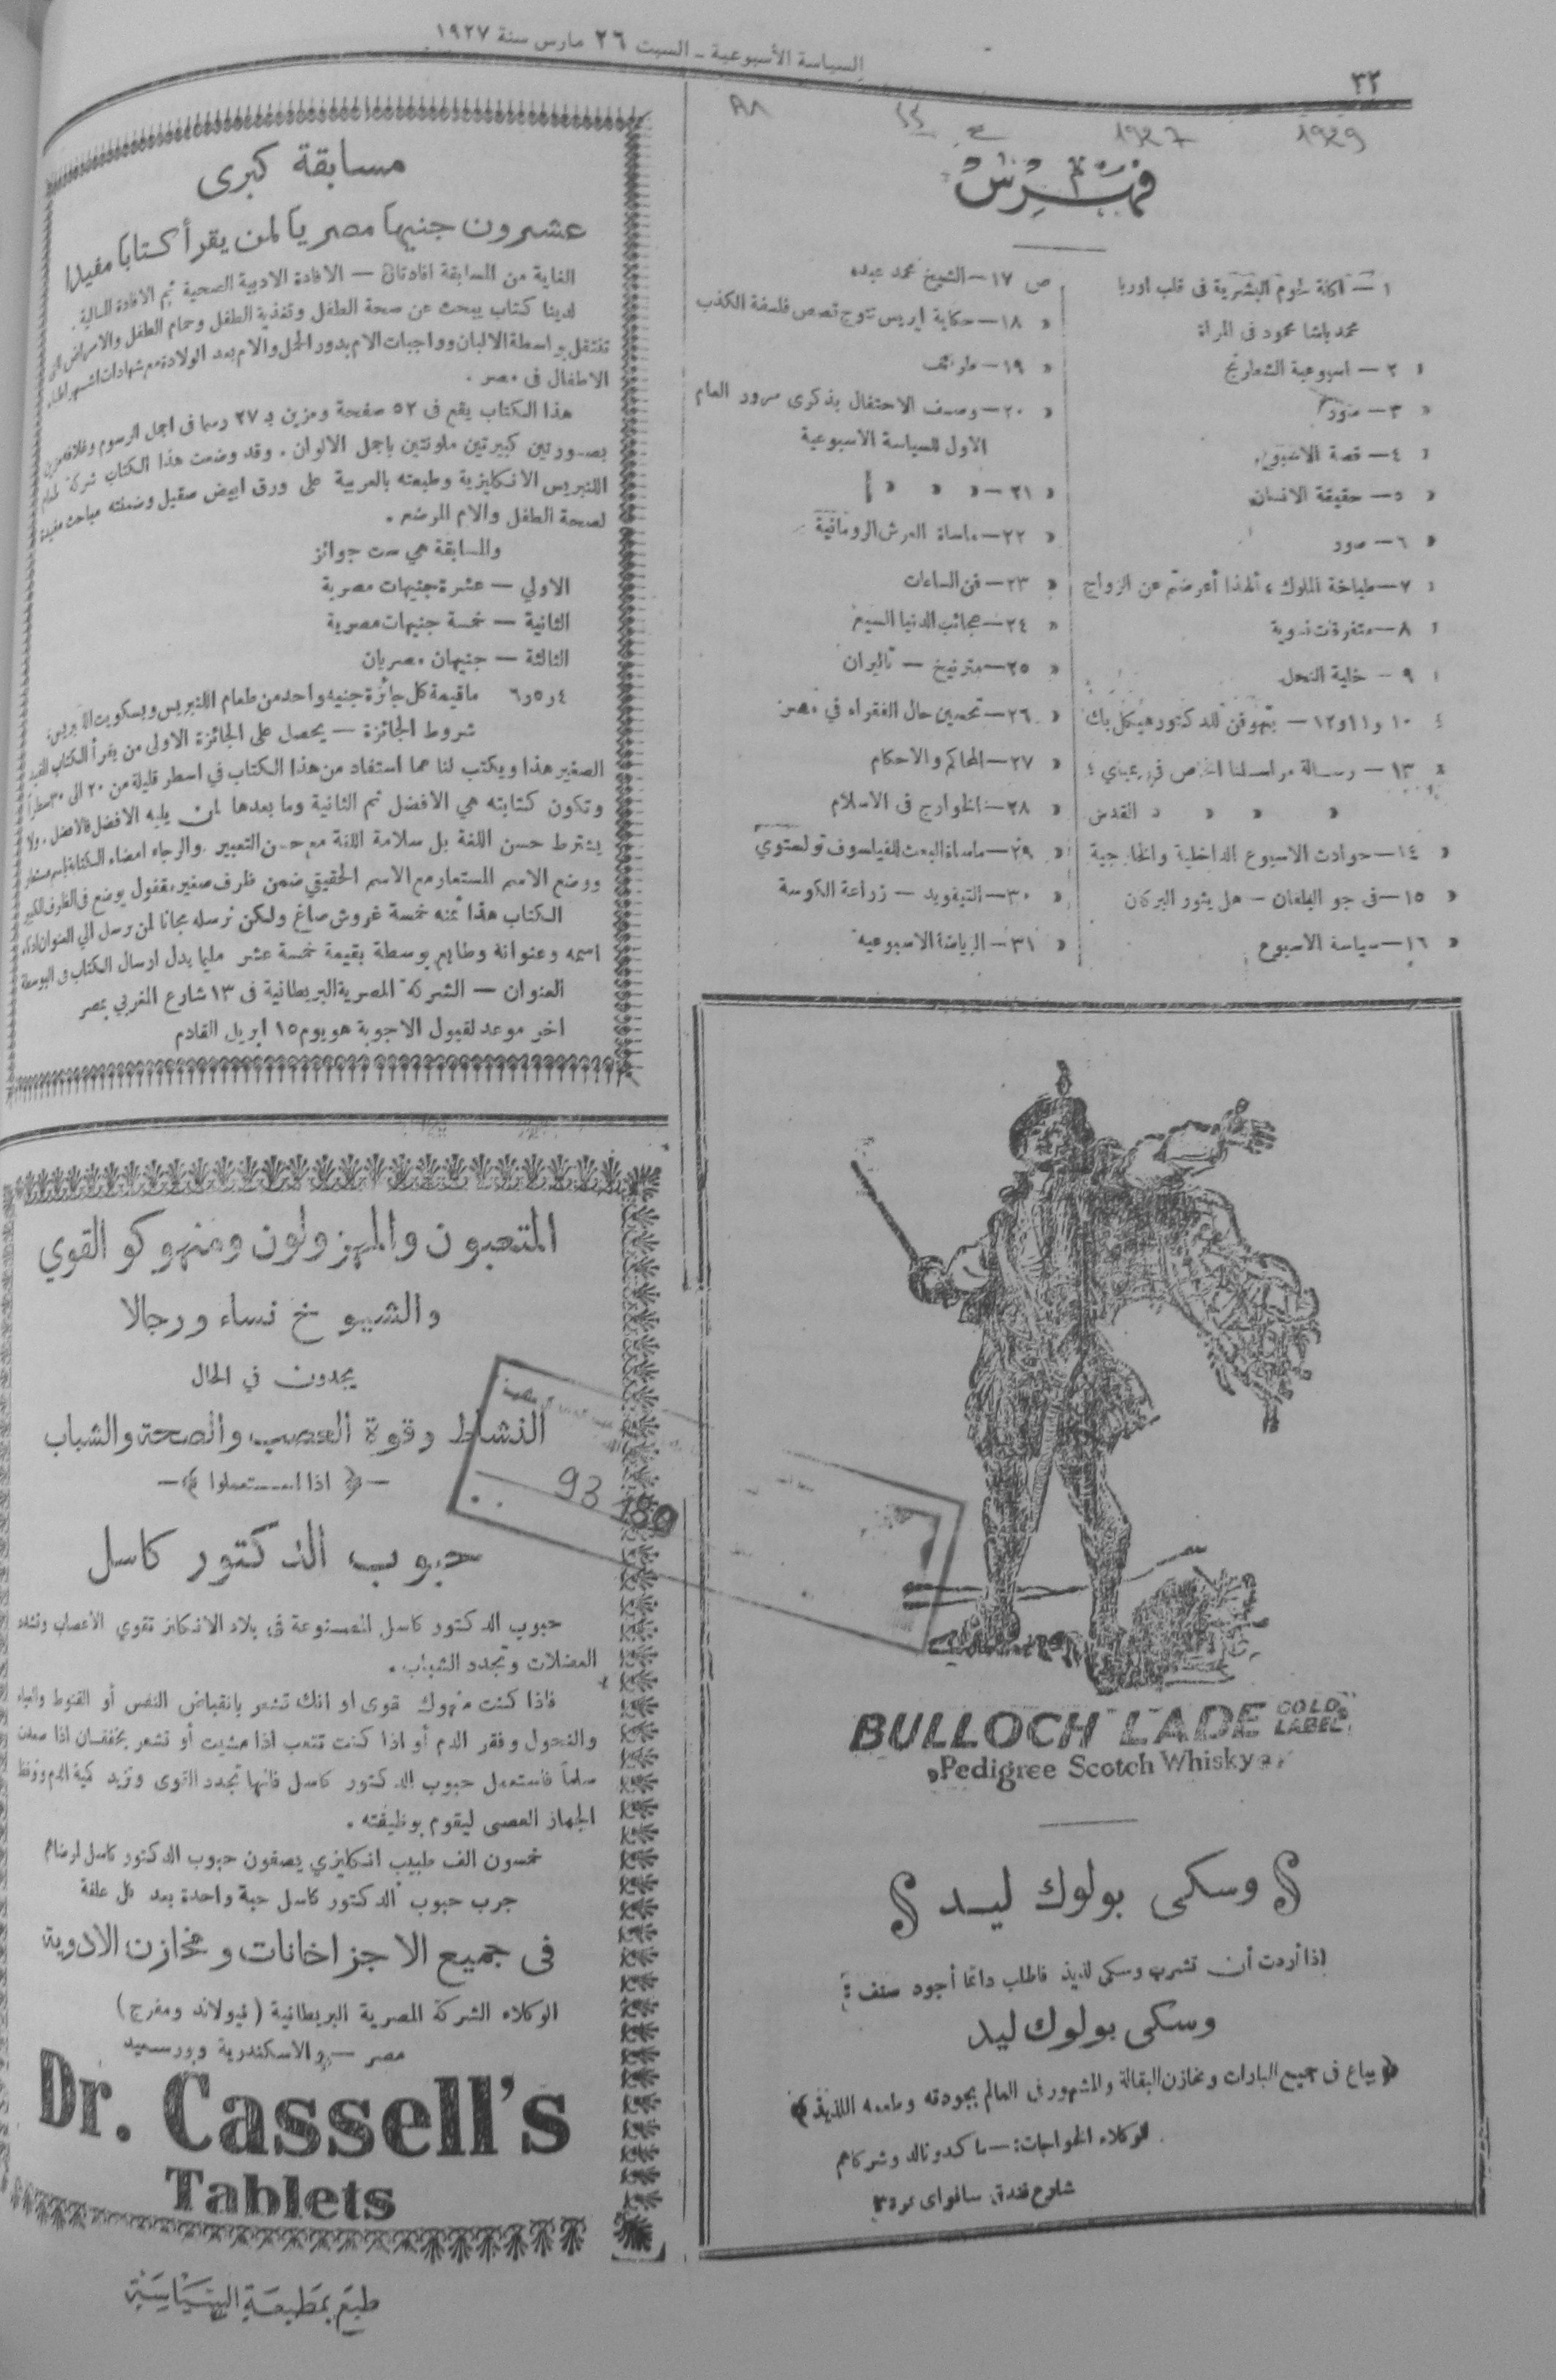 ٣٢
السياسة الأسبوعية ـ السبت ٢٦ مارس سنة ١٩٢٧
1929
1927
فهرس
١ — آكلة لحوم البشرية فى قلب اوربا
محمد باشا محمود فى المرآة
» ٢ — اسبوعية الشطرنج
» ٣ — صور
» ٤ — قصة الاسبوع
» ٥ — حقيقة الانسان
» ٦ — صور
» ٧ — طباخة الملوك ؛ ألهذا أعرضتم عن الزواج
» ٨ — متفرقات نسوية
» ٩ — خلية النحل
» ١٠ و١١ و١٢ — بتهوفن للدكتور هيكل بك
» ١٣ — رسالة مراسلنا الخاص فى
» » » » القدس
» ١٤ — حوادث الاسبوع الداخلية والخارجية
» ١٥ — فى جو البلقان — هل يثور البركان
» ١٦ — سياسة الاسبوع
ص ١٧ — الشيخ محمد عبده
» ١٨ — حكاية ابريس تتوج قصص فلسفة الكذب
» ١٩ — طرائف
» ٢٠ — وصف الاحتفال بذكرى مرور العام
الاول للسياسة الاسبوعية
» ٢١ — » » » »
» ٢٢ — مأساة العرش الرومانية
» ٢٣ — فن الساعات
» ٢٤ — عجائب الدنيا السبع
» ٢٥ — مترنيخ — تاليران
» ٢٦ — تحسين حال الفقراء في مصر
» ٢٧ — المحاكم والاحكام
» ٢٨ — الخوارج فى الاسلام
» ٢٩ — مأساة البعث للفيلسوف تولستوي
» ٣٠ — التيفويد — زراعة الكوسة
» ٣١ — الرياضة الاسبوعية
BULLOCH LADE GOLD LABEL
Pedigree Scotch Whisky
وسكى بولوك ليد
اذا أردت أن تشرب وسكى لذيذ فاطلب دائما أجود صنف :
وسكى بولوك ليد
﴿ يباع فى جميع البارات ومخازن البقالة والمشهور فى العالم بجودته وطعمه اللذيذ ﴾
الوكلاء الخواجات : — ماكدونالد وشركاهم
شارع فندق سافواى نمرة ٣
مسابقة كبرى
عشرون جنيها مصريا لمن يقرأ كتابا مفيدا
الغاية من المسابقة افادتان — الافادة الادبية الصحية ثم الافادة المالية .
لدينا كتاب يبحث عن صحة الطفل وتغذية الطفل وحمام الطفل والامراض التى
تنتقل بواسطة الالبان وواجبات الام بدور الحمل والام بعد الولادة مع شهادات اشهر اطباء
الاطفال فى مصر .
هذا الكتاب يقع فى ٥٢ صفحة ومزين بـ ٢٧ رسما فى اجمل الرسوم وغلافه مزين
بصورتين كبيرتين ملونتين باجمل الالوان . وقد وضعت هذا الكتاب شركة طعام
اللنبريس الانكليزية وطبعته بالعربية على ورق ابيض صقيل وضمنته مباحث مفيدة
لصحة الطفل والام المرضع .
والمسابقة هي ست جوائز
الاولي — عشرة جنيهات مصرية
الثانية — خمسة جنيهات مصرية
الثالثة — جنيهان مصريان
٤ و٥ و٦ ماقيمة كل جائزة جنيه واحد من طعام اللنبريس وبسكويت اللنبريس
شروط الجائزة — يحصل على الجائزة الاولى من يقرأ الكتاب المفيد
الصغير هذا ويكتب لنا عما استفاد من هذا الكتاب في اسطر قليلة من ٢٠ الى ٣٠ سطراً
وتكون كتابته هي الافضل ثم الثانية وما بعدها لمن يليه الافضل فالافضل . ولا
يشترط حسن اللغة بل سلامة اللغة مع حسن التعبير . والرجاء امضاء الكتابة باسم مستعار
ووضع الاسم المستعار مع الاسم الحقيقي ضمن ظرف صغير مقفول يوضع فى الظرف الكبير
الكتاب هذا ثمنه خمسة غروش صاغ ولكن نرسله مجانا لمن يرسل الي العنوان ادناه
اسمه وعنوانه وطابع بوسطة بقيمة خمسة عشر مليما بدل ارسال الكتاب فى البوسطة
العنوان — الشركة المصرية البريطانية فى ١٣ شارع المغربي بمصر
اخر موعد لقبول الاجوبة هو يوم ١٥ ابريل القادم
المتعبون والمهزولون ومنهوكو القوي
والشيوخ نساء ورجالا
يجدون في الحال
النشاط وقوة العصب والصحة والشباب
— ﴿ اذا استعملوا ﴾ —
حبوب الدكتور كاسل
93 180
حبوب الدكتور كاسل المصنوعة فى بلاد الانكليز تقوي الاعصاب وتشدد
العضلات وتجدد الشباب .
فاذا كنت منهوك قوى او انك تشعر بانقباض النفس أو القنوط والعياء
والنحول وفقر الدم أو اذا كنت تتعب اذا مشيت أو تشعر بخفقان اذا صعدت
سلماً فاستعمل حبوب الدكتور كاسل فانها تجدد القوى وتزيد كمية الدم وتوقظ
الجهاز العصبى ليقوم بوظيفته .
خمسون الف طبيب انكليزي يصفون حبوب الدكتور كاسل لمرضاهم
جرب حبوب الدكتور كاسل حبة واحدة بعد كل علفة
فى جميع الاجزاخانات ومخازن الادوية
الوكلاء الشركة المصرية البريطانية ( نيولاند ومفرج )
مصر — والاسكندرية وبورسعيد
Dr. Cassell's
Tablets
طبع بمطبعة السياسة